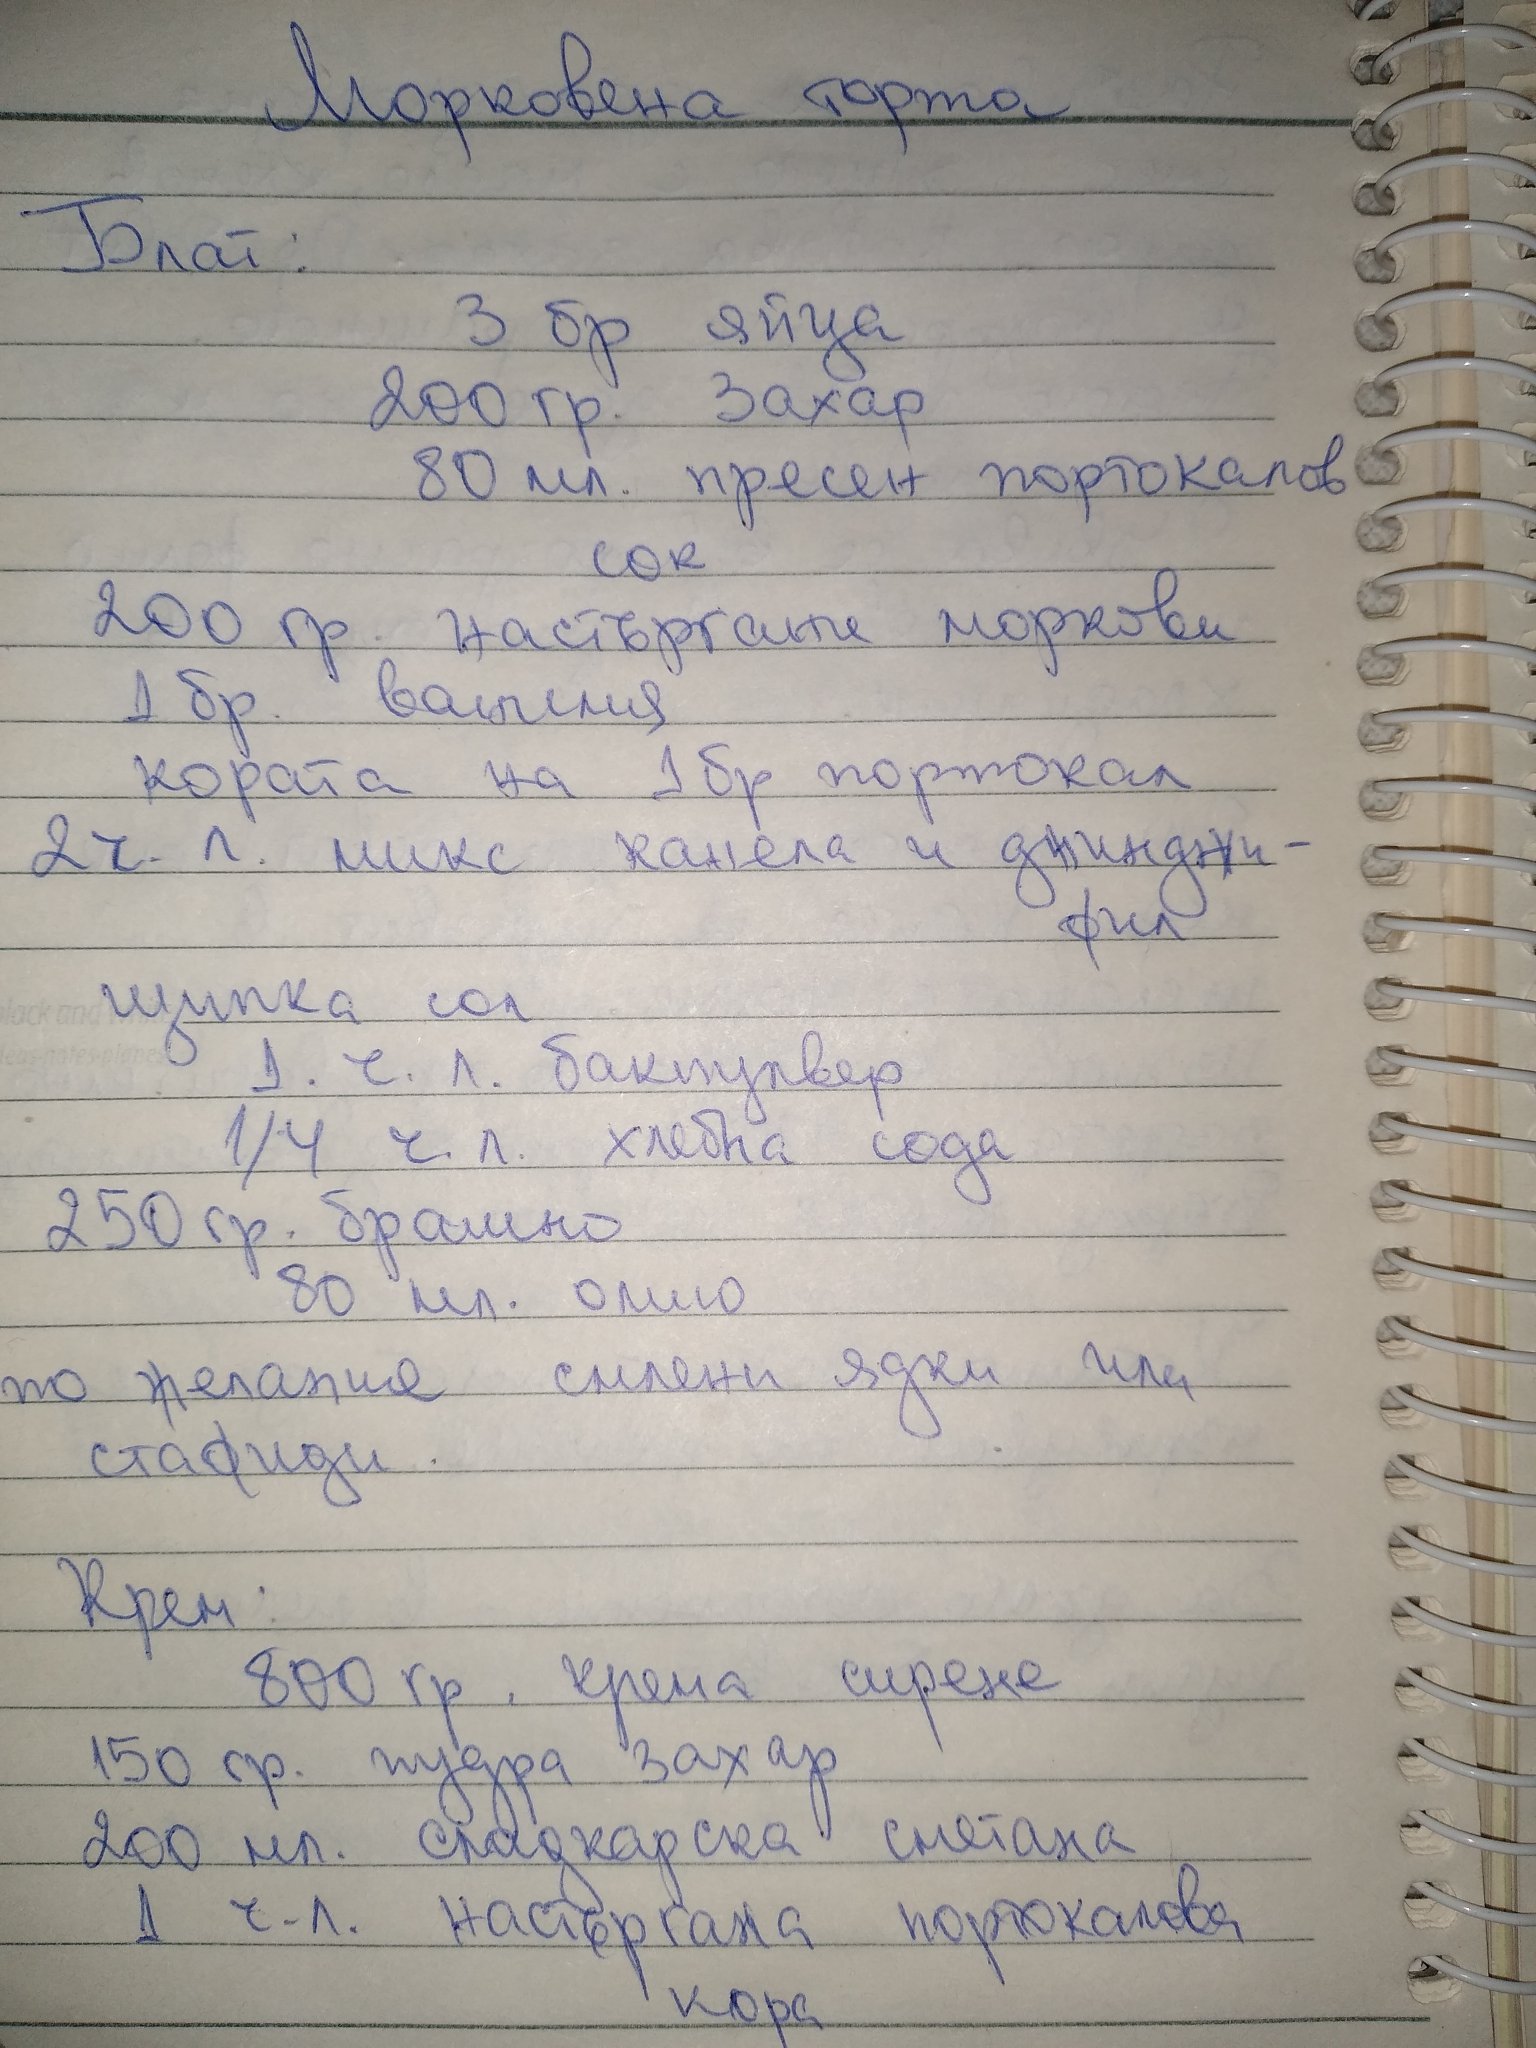 Морковена торта
Блат:
3 бр яйца
200 гр. Захар
80 мл. пресен портокалов
сок
200 гр. настъргани моркови
1 бр. ванилия
кората на 1 бр портокал
2 ч. л. микс канела и джинджи-
фил
щипка сол
1. ч. л. бакпулвер
1/4 ч. л. хлебна сода
250 гр. брашно
80 мл. олио
по желание смлени ядки или
стафиди.
Крем:
800 гр. крема сирене
150 гр. пудра захар
200 мл. сладкарска сметана
1 ч.л. настъргана портокалова
кора